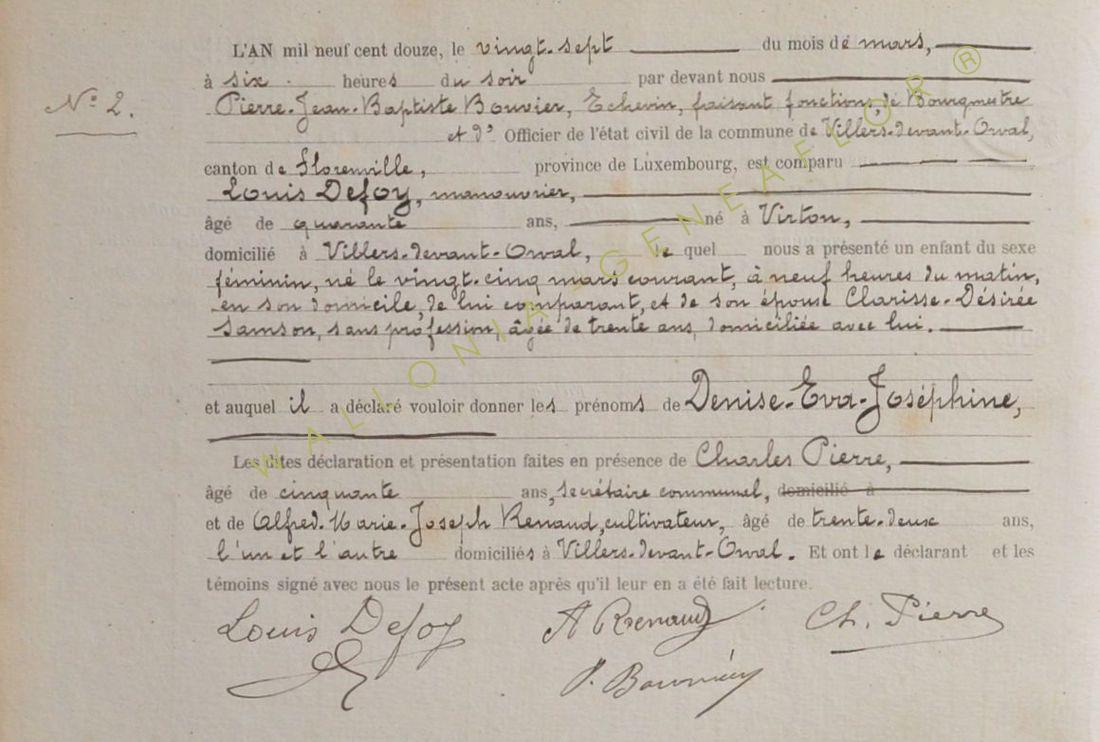 L'AN mil neuf cent douze, le vingt-sept du mois de mars,
à six heures du soir par devant nous
Nº 2.
Pierre-Jean-Baptiste Bouvier, Echevin, faisant fonctions de Bourgmestre
et d' Officier de l'état civil de la commune de Villers-devant-Orval,
canton de Florenville, province de Luxembourg, est comparu
Louis Defoy, manouvrier,
âgé de quarante ans, né à Virton,
domicilié à Villers-devant-Orval, le quel nous a présenté un enfant du sexe
féminin, né le vingt-cinq mars courant, à neuf heures du matin,
en son domicile, de lui comparant, et de son épouse Clarisse-Désirée
Samson, sans profession, âgée de trente ans, domiciliée avec lui.
et auquel il a déclaré vouloir donner les prénoms de Denise-Eva-Joséphine,
Les dites déclaration et présentation faites en présence de Charles Pierre,
âgé de cinquante ans, secrétaire communal, domicilié à
et de Alfred-Marie-Joseph Renaud, cultivateur, âgé de trente-deux ans,
l'un et l'autre domiciliés à Villers-devant-Orval. Et ont le déclarant et les
témoins signé avec nous le présent acte après qu'il leur en a été fait lecture.
Louis Defoy A Renaud Ch. Pierre
P. Bouvier
WALLONIA GENEAFLOR ®